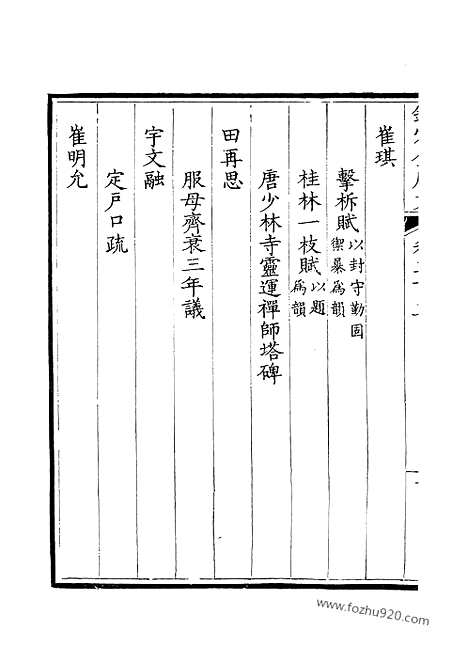 崔琪
擊柝賦以封守勤固禦暴爲韻
桂林一枝賦以題爲韻
唐少林寺靈運禪師塔碑
田再思
服母齊衰三年議
宇文融
定戶口疏
崔明允
www.fozhu920.com